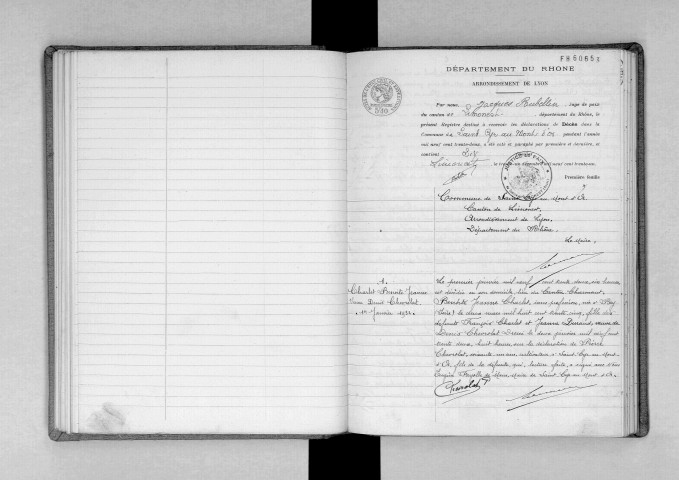 FH6065
DÉPARTEMENT DU RHÔNE
ARRONDISSEMENT DE LYON
Par nous, Jacques Rebellin, Juge de paix
du canton de Limonest, département du Rhône, le
présent Registre destiné à recevoir les déclarations de Décès dans la
Commune de Saint Cyr au Mont d'Or pendant l'année
mil neuf cent trente-deux, a été coté et paraphé par première et dernière, et
contient
Limonest, le mil neuf cent trente-un.
Première feuille
Commune de Saint Cyr au Mont d'Or
Canton de Limonest
Arrondissement de Lyon
Département du Rhône.
Le Maire,
1.
Charlet Benoite Jeanne
Veuve Denis Chevrolat
1er Janvier 1932
Le premier janvier mil neuf cent trente deux, six heures,
est décédée en son domicile,
Benoite Jeanne Charlet, sans profession, née à
le deux mars mil huit cent cinq, fille des
défunts François Charlet et Jeanne Durand, veuve de
Denis Chevrolat. Dressé le deux janvier mil neuf cent
trente deux, huit heures, sur la déclaration de Pierre
Chevrolat, ans, cultivateur à Saint Cyr au Mont
d'Or, fils de la défunte, qui, lecture faite, a signé avec Nous
Maire de Saint Cyr au Mont d'Or.
Chevrolat P